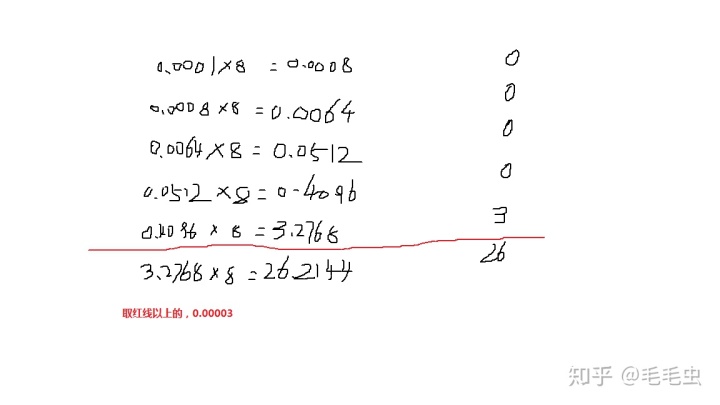 0.0001×8 = 0.0008 0
0.0008×8 = 0.0064 0
0.0064×8 = 0.0512 0
0.0512×8 = 0.4096 0
0.4096×8 = 3.2768 3
3.2768×8 = 26.2144 26
取红线以上的，0.00003
知乎 @毛毛虫